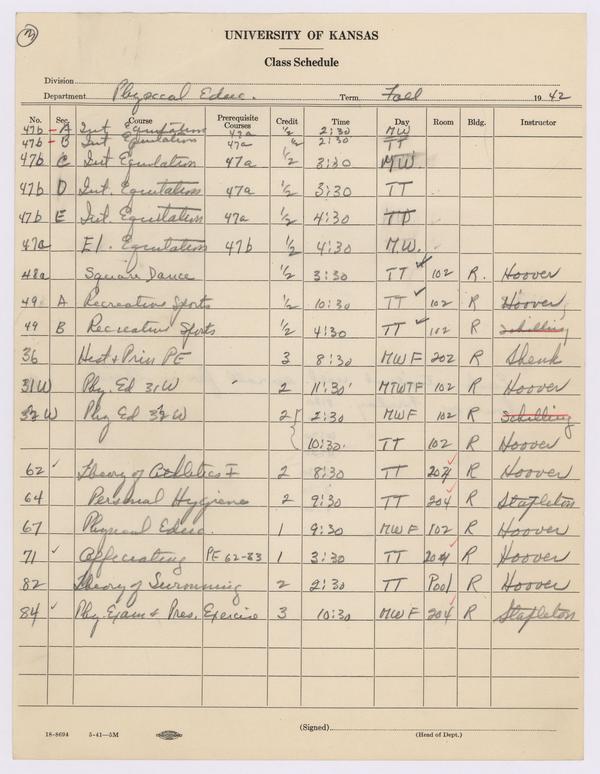 2
UNIVERSITY OF KANSAS
Class Schedule
Division
Department Physical Educ. Term Fall 1942
No. Sec. Course Prerequisite Courses Credit Time Day Room Bldg. Instructor
47b - A Int Equitation 47a 1/2 2:30 MW
47b - B Int Equitation 47a 1/2 2:30 TT
47b C Int Equitation 47a 1/2 3:30 MW.
47b D Int. Equitation 47a 1/2 3:30 TT
47b E Int. Equitation 47a 1/2 4:30 TT
47a El. Equitation 47b 1/2 4:30 M.W.
48a Square Dance 1/2 3:30 TT ✓ 102 R. Hoover
49 A Recreative Sports 1/2 10:30 TT ✓ 102 R Hoover
49 B Recreative Sports 1/2 4:30 TT ✓ 102 R Schilling
36 Hist + Prin PE 3 8:30 MWF 202 R Shenk
31W Phy. Ed 31W 2 11:30 MTWTF 102 R Hoover
32W Phy Ed 32W 2 { 2:30 MWF 102 R Schilling
10:30. TT 102 R Hoover
62 ✓ Theory of Athletics I 2 8:30 TT 204 R Hoover
64 Personal Hygiene 2 9:30 TT 204 R Stapleton
67 Physical Educ. 1 9:30 MWF 102 R Hoover
71 ✓ Officiating PE 62-83 1 3:30 TT 204 R Hoover
82 Theory of Swimming 2 2:30 TT Pool R Hoover
84 ✓ Phy. Exam + Pres. Exercise 3 10:30 MWF 204 R Stapleton
(Signed)
(Head of Dept.)
18-8694 5-41—5M